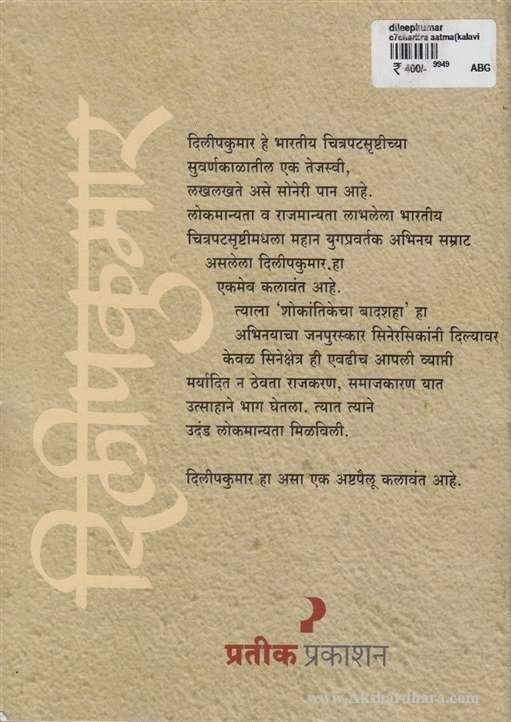 dileepkumar
c7charitra aatma(kalavi
₹ 400/- 9949 ABG
दिलीपकुमार
दिलीपकुमार हे भारतीय चित्रपटसृष्टीच्या
सुवर्णकाळातील एक तेजस्वी,
लखलखते असे सोनेरी पान आहे.
लोकमान्यता व राजमान्यता लाभलेला भारतीय
चित्रपटसृष्टीमधला महान युगप्रवर्तक अभिनय सम्राट
असलेला दिलीपकुमार.हा
एकमेव कलावंत आहे.
त्याला ‘शोकांतिकेचा बादशहा’ हा
अभिनयाचा जनपुरस्कार सिनेरसिकांनी दिल्यावर
केवळ सिनेक्षेत्र ही एवढीच आपली व्याप्ती
मर्यादित न ठेवता राजकरण, समाजकारण यात
उत्साहाने भाग घेतला. त्यात त्याने
उदंड लोकमान्यता मिळविली.
दिलीपकुमार हा असा एक अष्टपैलू कलावंत आहे.
प्रतीक प्रकाशन
www.Akshardhara.com